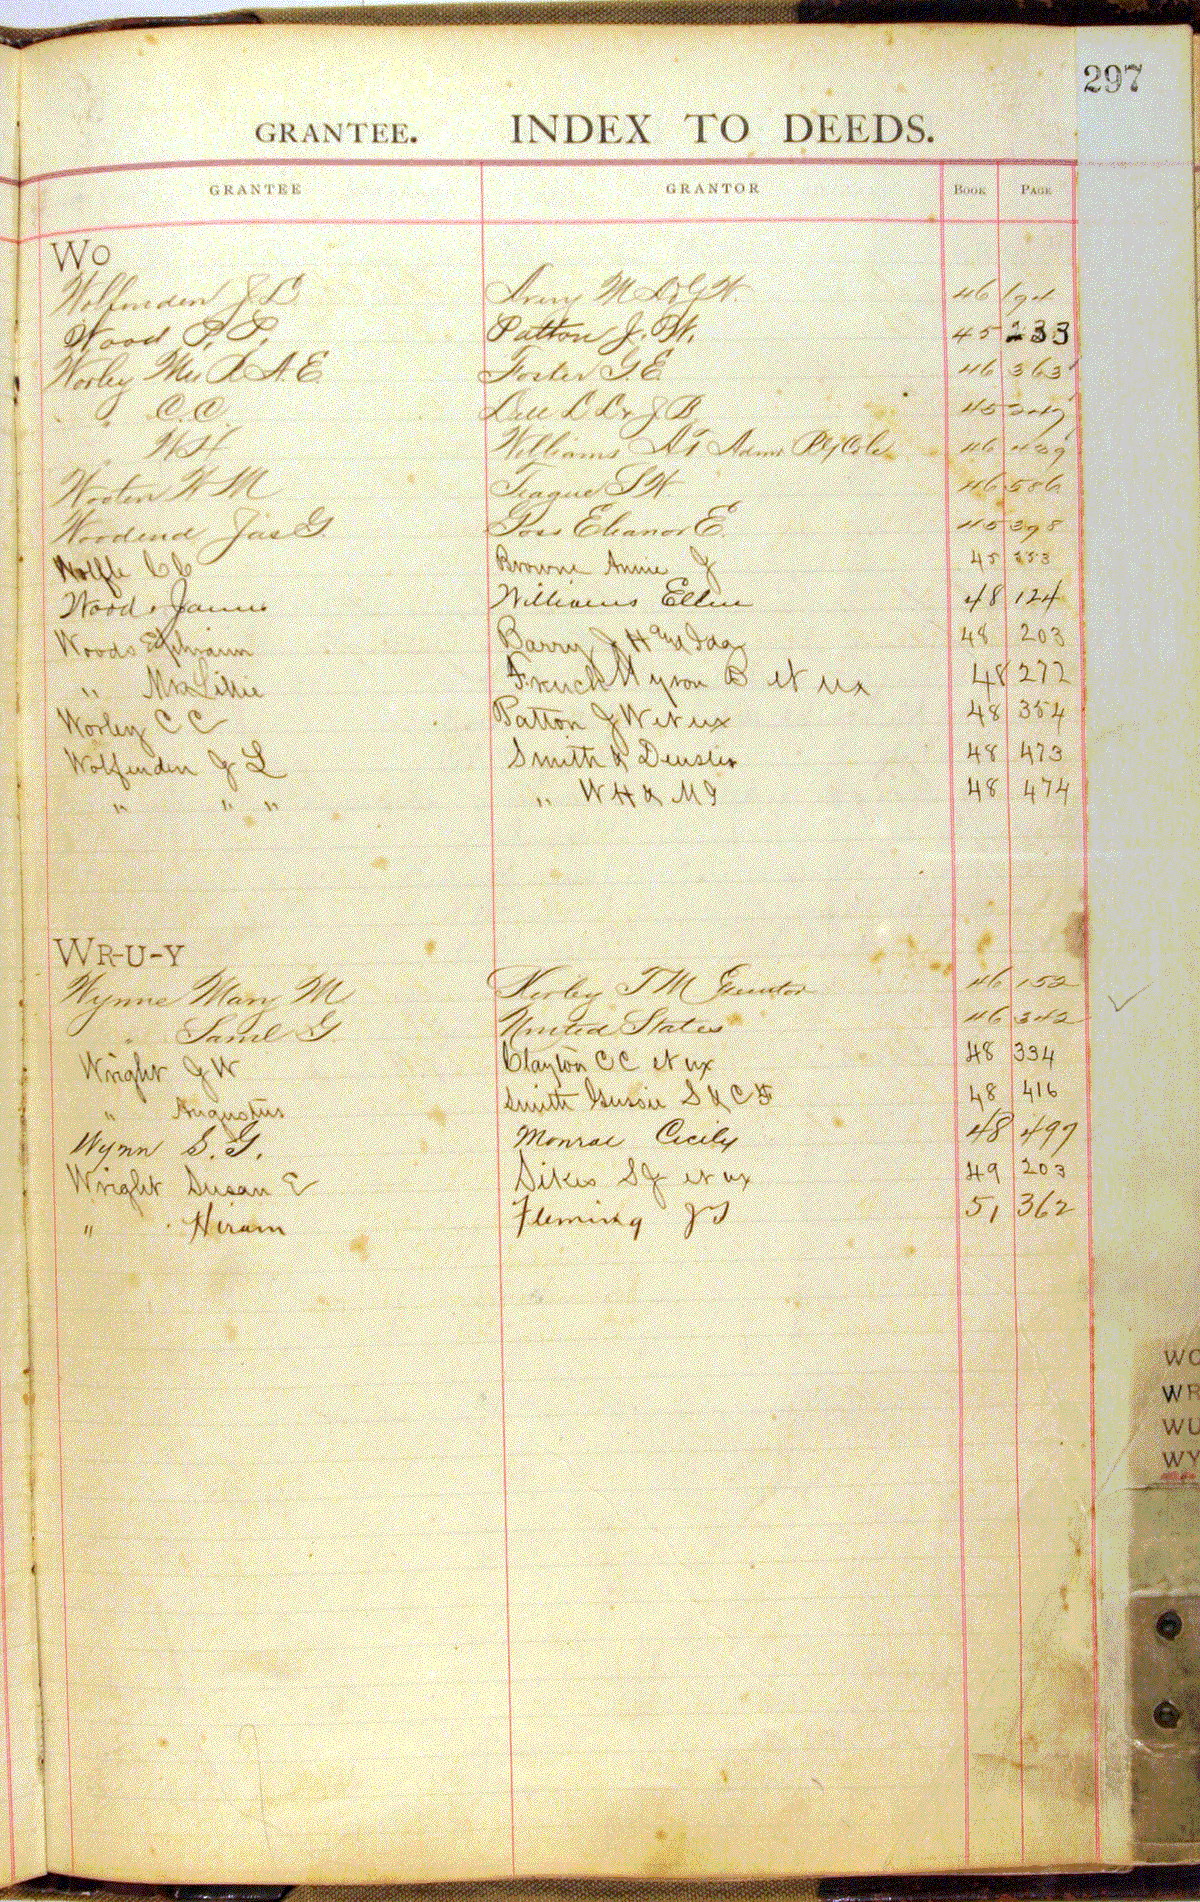 297
GRANTEE. INDEX TO DEEDS.
GRANTEE GRANTOR BOOK PAGE
WO
Wolfenden J L Avery M L & G W. 46 194
Wood P. P. Patton J. W. 45 233
Worley Mrs A. E. Foster G. E. 46 363
" C. C. Dell L L & J B 45 247
W H Williams Admr 46 489
Wooten W M Teague S W. 46 586
Woodend Jas G. Poss Eleanor E. 45 398
Wolffe C C Browne Annie J 45 553
Wood, James Williams Ellen 48 124
Woods Ephraim Barry J H and Ida 48 203
" Mrs Lillie French Myron B et ux 48 272
Worley C C Patton J W et ux 48 354
Wolfenden J L Smith & 48 473
" " " " W H & M J 48 474
WR-U-Y
Wynne Mary M Kerley T M Executor 46 152
" Saml G United States 46 342
Wright J W Clayton C C et ux 48 334
" Augustus Smith Gussie S & C F 48 416
Wynn S. G. Monroe Cecily 48 497
Wright Susan E Sikes S J et ux 49 203
" Hiram Fleming J S 51 362
WO
WR
WU
WY